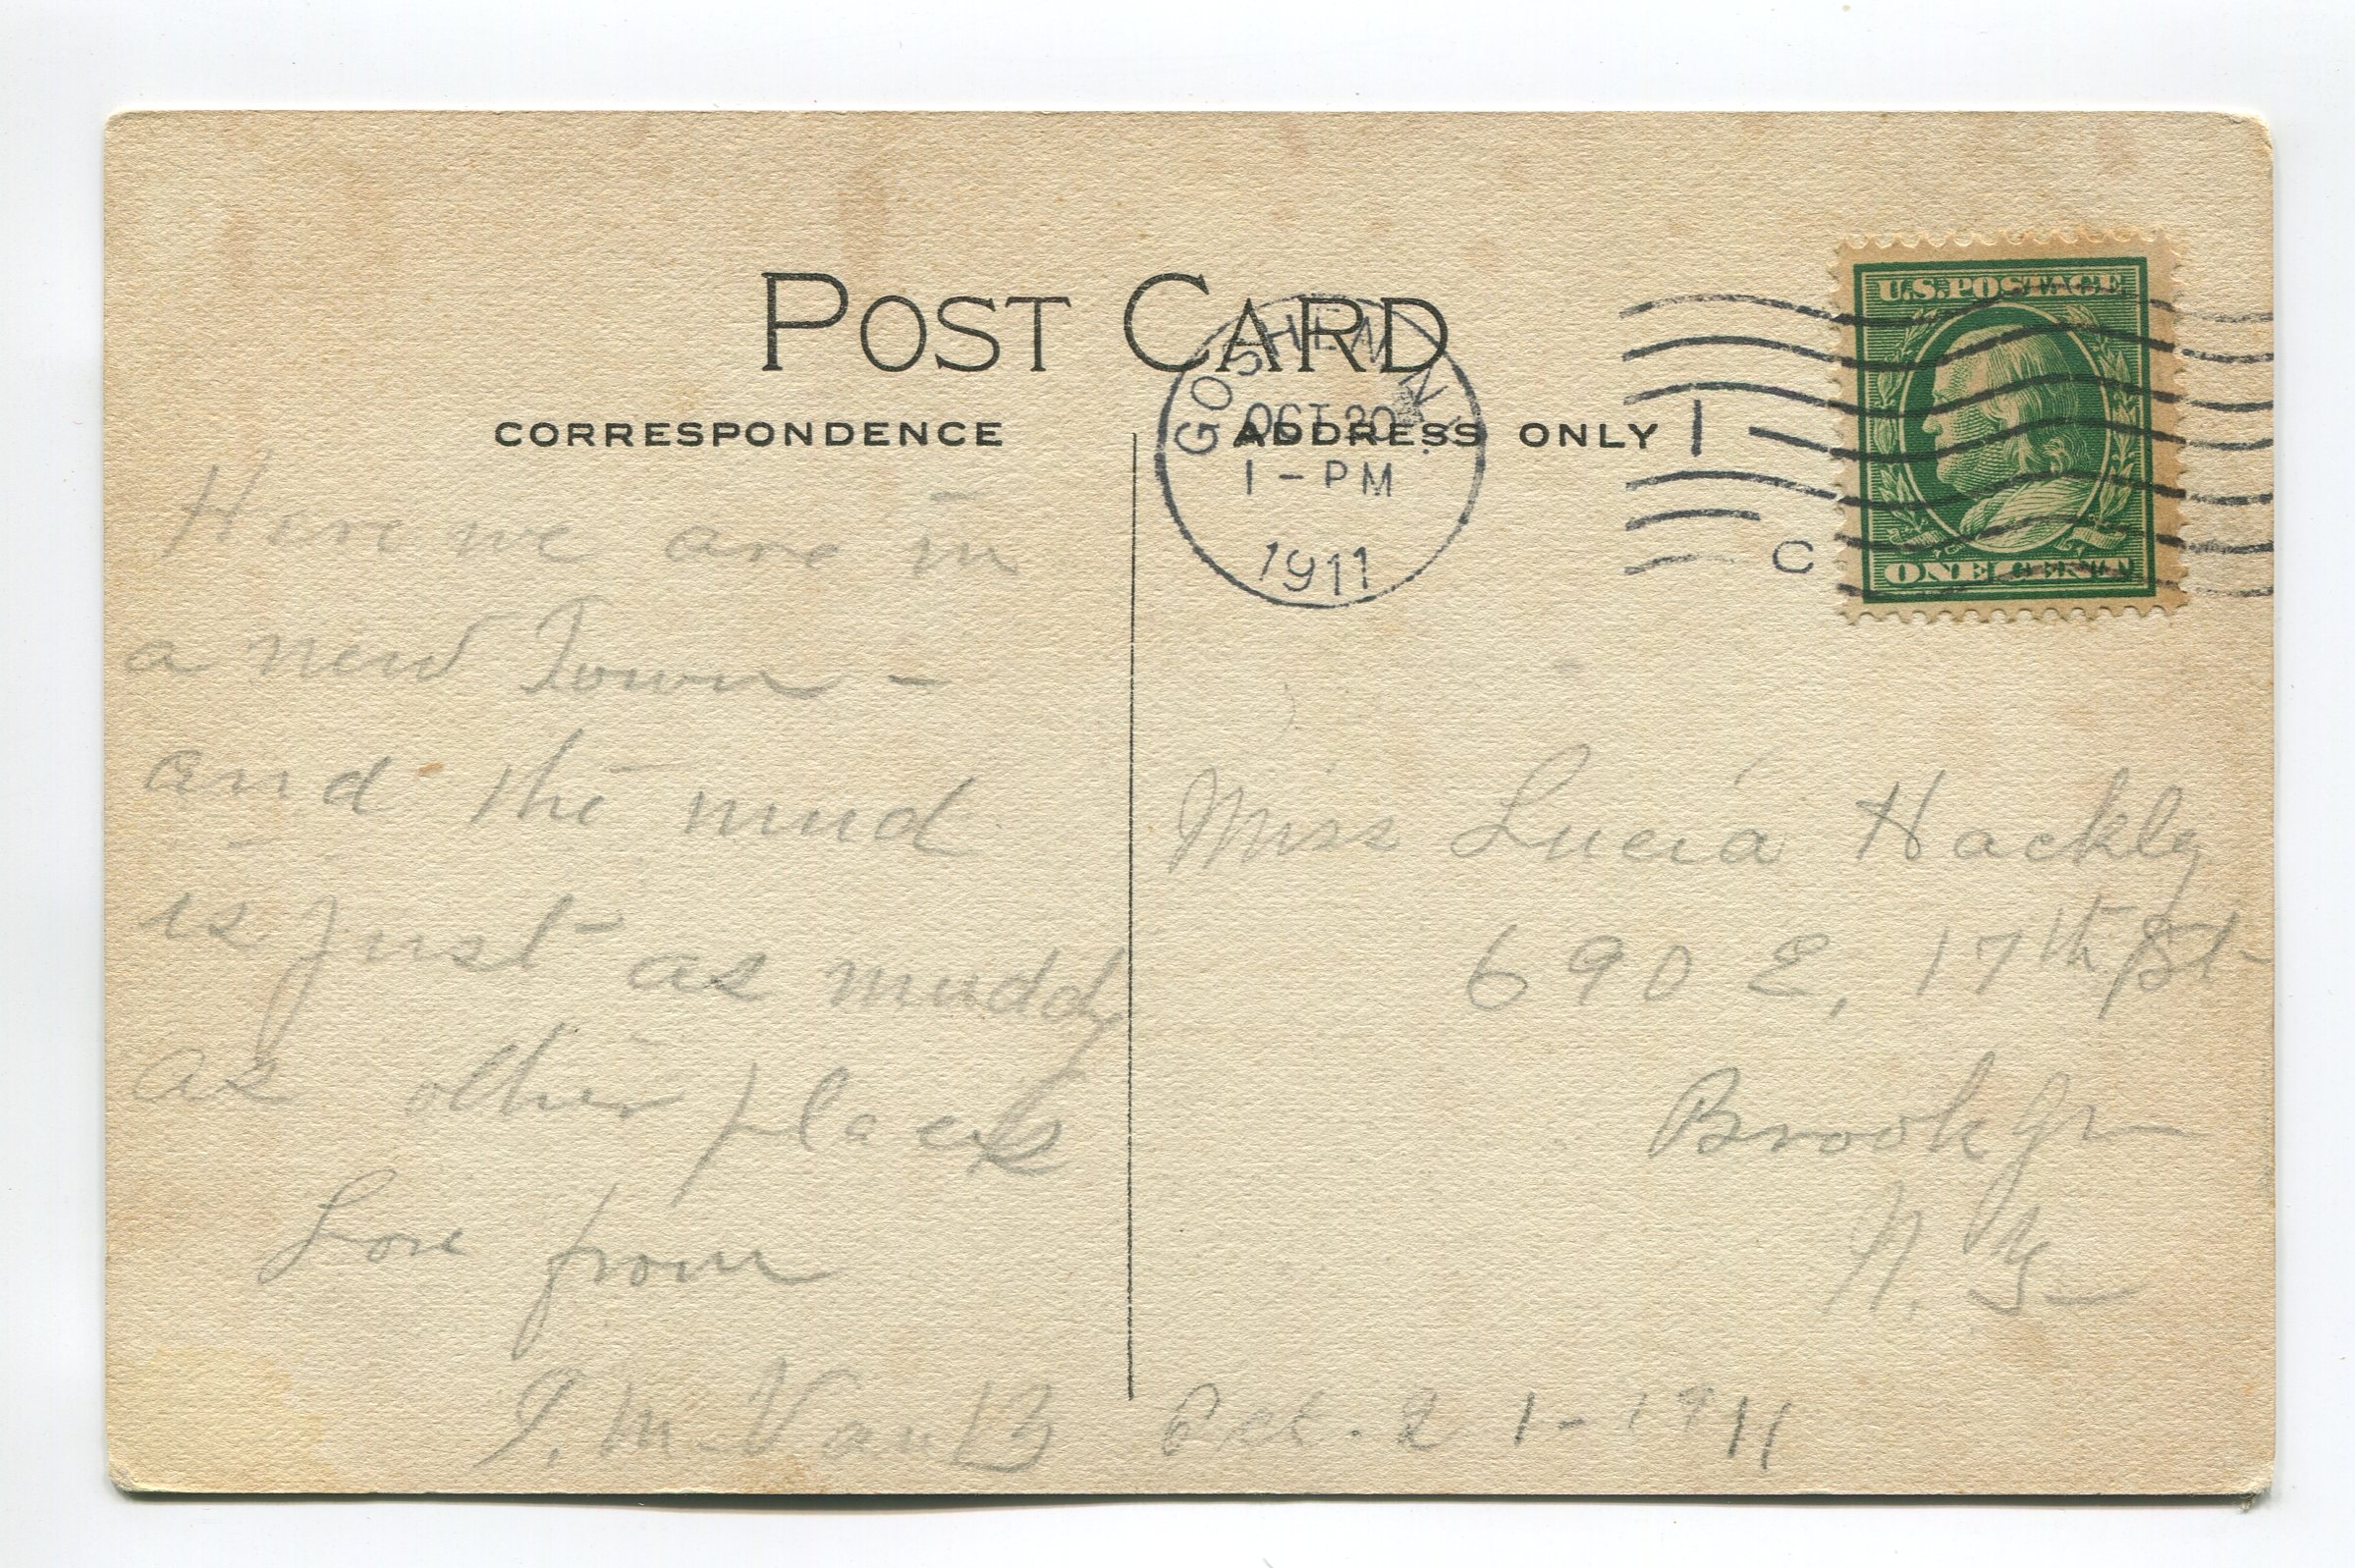 POST CARD
CORRESPONDENCE
ADDRESS ONLY
GOSHEN N.Y.
OCT 20
1-PM
1911
1
C
U.S. POSTAGE
ONE CENT
Here we are in
a new Town -
and the mud
is just as muddy
as other places
Love from
Miss Lucia Hackly
690 E. 17th St
Brooklyn
N.Y.
Oct. 21-1911